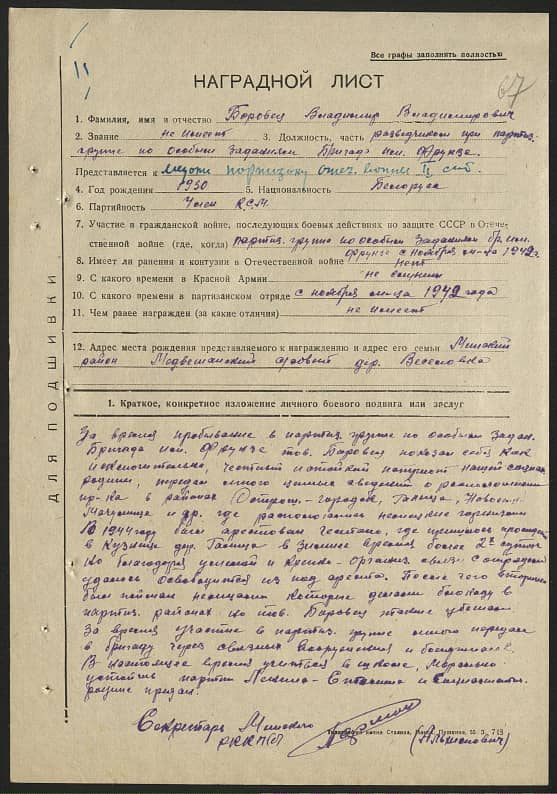 Все графы заполнять полностью
67
НАГРАДНОЙ ЛИСТ
1. Фамилия, имя и отчество Боровец Владимир Владимирович
2. Звание не имеет 3. Должность, часть разведчиком при партиз.
группе по особым заданиям Бригады им. Фрунзе.
Представляется к медали партизану отеч. войны II ст.
4. Год рождения 1930 5. Национальность Белорус
6. Партийность Член КСМ.
7. Участие в гражданской войне, последующих боевых действиях по защите СССР в Отече-
ственной войне (где, когда) партиз. группе по особым заданиям бр. им.
Фрунзе с ноября м-ца 1942 г.
8. Имеет ли ранения и контузии в Отечественной войне нет
9. С какого времени в Красной Армии не служил
10. С какого времени в партизанском отряде с ноября м-ца 1942 года
11. Чем ранее награжден (за какие отличия) не имеет
12. Адрес места рождения представляемого к награждению и адрес его семьи Минский
район сельсовет дер. Веселовка
ДЛЯ ПОДШИВКИ
1. Краткое, конкретное изложение личного боевого подвига или заслуг
За время пребывание в партиз. группе по особым задан.
Бригада им. Фрунзе тов. Боровец показал себя как
исключительно, честный патриот нашей
родины, передал много ценных сведений о расположении
пр-ка в районах городок,
и др. где расположились немецкие гарнизоны
В 1944 году был арестован гестапо, где
в дер. в зимнее время более 2х суток
но благодаря связи с отрядом
удалось освободится из под ареста. После чего вторично
был пойман немцами которые делали блокаду в
партиз. районах но тов. Боровец
За время участие в партиз. группе много передал
в бригаду через связных вооружения и боеприпас.
В настоящее время учиться в школе, Морально
устойчив партии Ленина-Сталина и Социалистич.
родине предан.
Секретарь Минского
РККП(б)
Типография имени Сталина, Минск, Пушкина, 55. З. 713